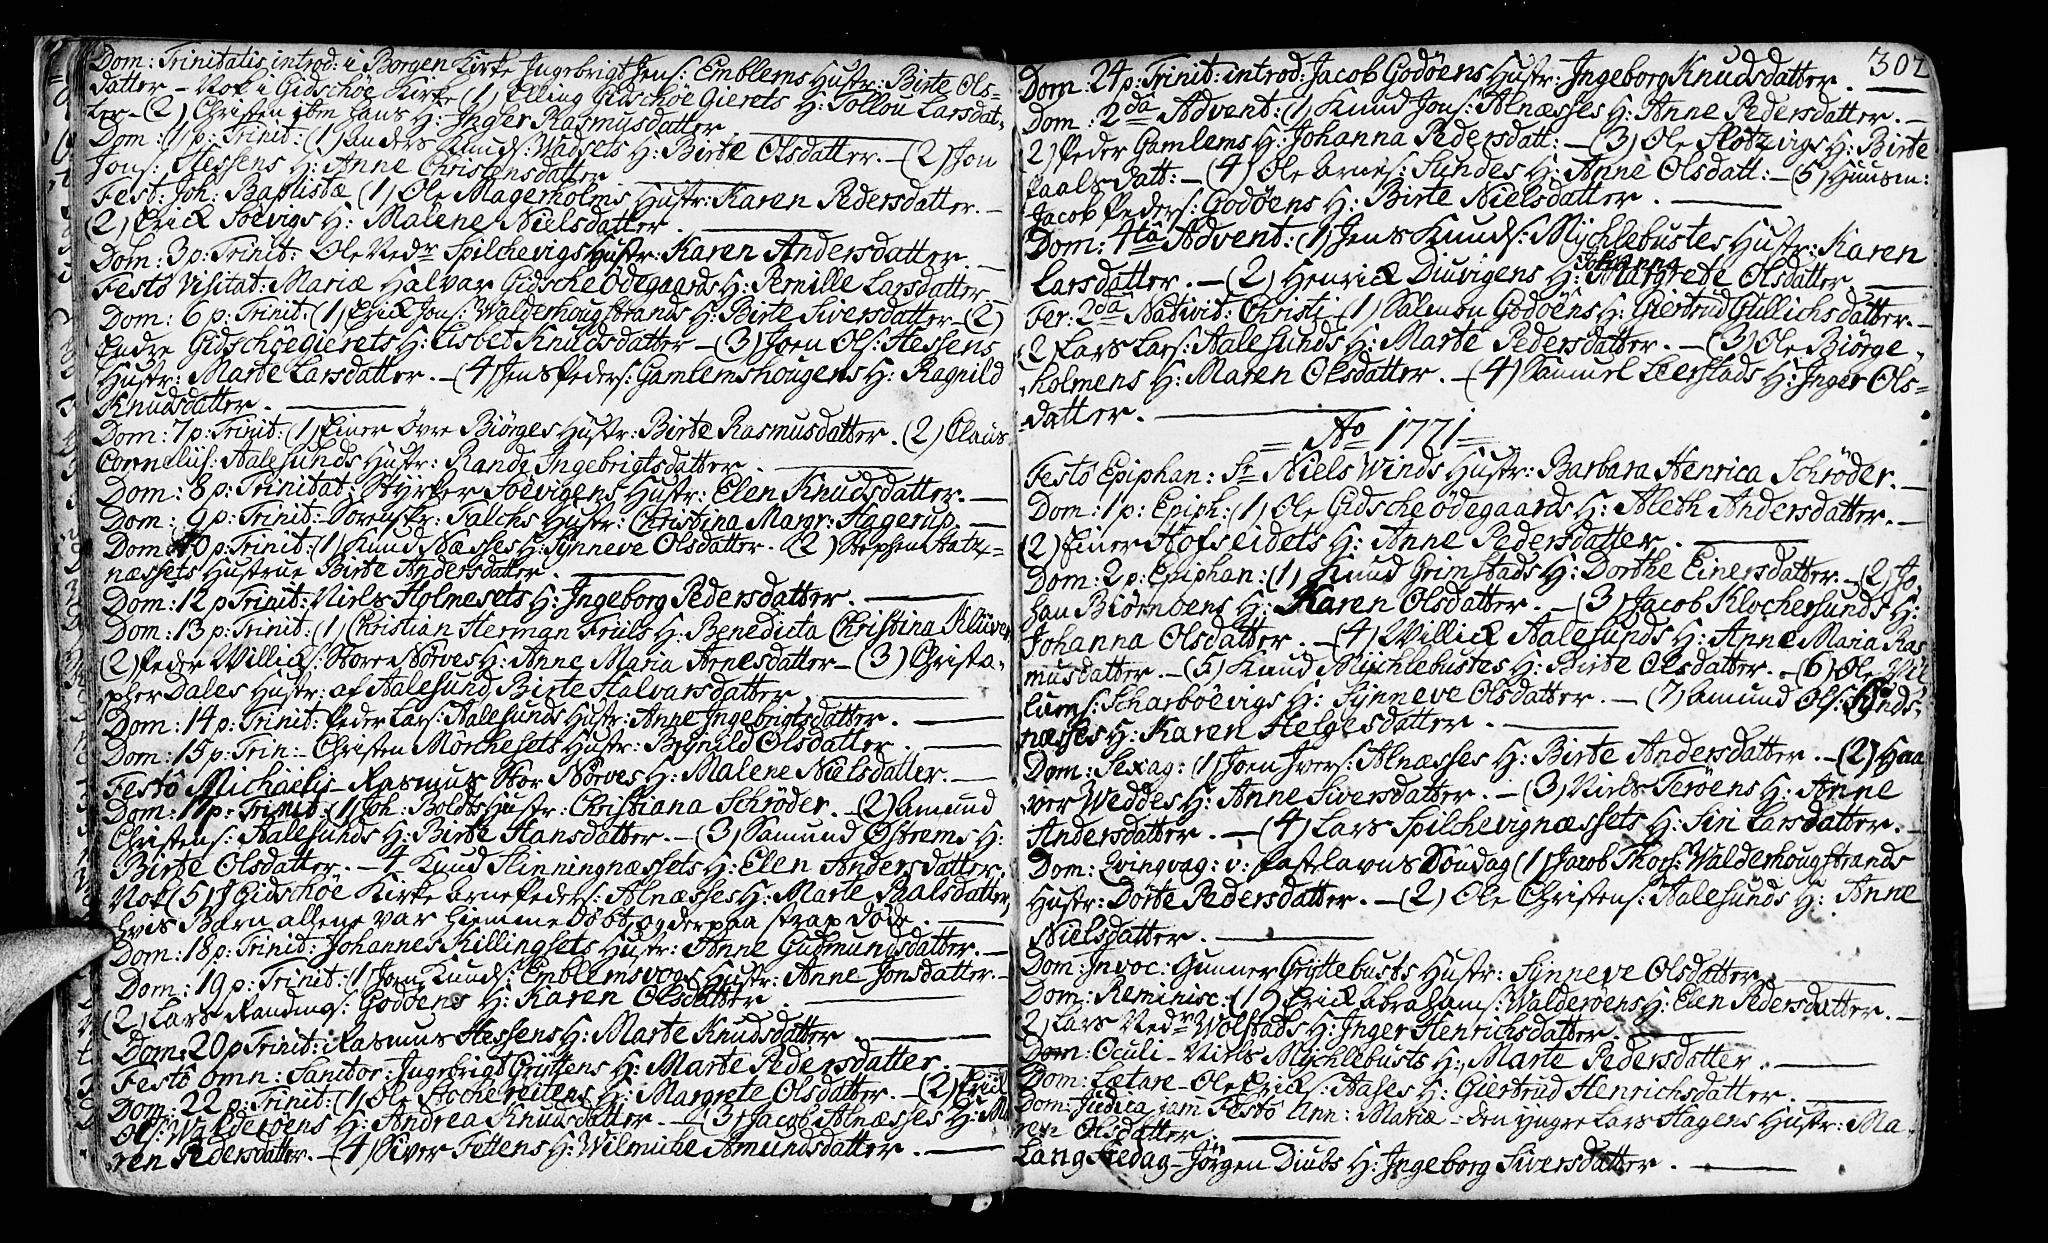 Dom: Trinitatis introd: i Borgen Kirke Ingebrigt Jens: Emblems Hustr: Birte Ols-
datter – Nok i Gidschöe Kirke (1) Elling Gidschöe Gierets H: Sollou Larsdat-
ter – (2) Christen ibm hans H: Inger Rasmusdatter.
Dom: 1 p: Trinit: (1) Anders Knuds: Wadsets H: Birte Olsdatter. – (2) Jon
Jons: Hessens H: Anne Christensdatter
Fest: Joh: Baptistæ (1) Ole Magerholms Hustr: Karen Pedersdatter. –
(2) Erick Soevigs H: Malene Nielsdatter.
Dom: 3 p: Trinit: Ole Nedr Spilchevigs Hustr: Karen Andersdatter. –
Festô Visitat: Mariæ Halvar Gidsche Ödegaards H: Pernille Larsdatter –
Dom: 6 p: Trinit: (1) Erick Jons: Walderhougstrands H: Birte Siversdatter – (2)
Endre Gidschöegierets H: Lisbet Knudsdatter – (3) Joen Ols: Hessens
Hustr: Marte Larsdatter. – (4) Jens Peders: Gamlemshougens H: Ragnild
Knudsdatter.
Dom: 7 p: Trinit: (1) Einer övre Biörges Hustr: Birte Rasmusdatter. (2) Claus
Cornelius: Aalesunds Hustr: Rande Ingebrigtsdatter.
Dom: 8 p: Trinitat: Styrker Soevigens Hustr: Elen Knudsdatter. –
Dom: 9 p: Trinit: Sorenskr: Falchs Hustr: Christina Margr: Hagerup. –
Dom: 10 p: Trinit: (1) Knud Næsses H: Synneve Olsdatter. (2) Stephen Hatz-
næssets Hustrue Birte Andersdatter.
Dom: 12 p Trinit: Niels Holmesets H: Ingeborg Pedersdatter.
Dom: 13 p: Trinit: (1) Christian Herman Früls H: Benedicta Christina Klüver
(2) Peder Willichs: Store Nörves H: Anne Maria Arnesdatter – (3) Christo-
pher Dales Hustr: af Aalesund Birte Halvarsdatter.
Dom: 14 p: Trinit: Peder Lars: Aalesunds Hustr: Anne Ingebrigtsdatter.
Dom: 15 p: Trin: – Christen Mönchesets Hustr: Brynild Olsdatter.
Festô Michaelis – Rasmus Stor Nörves H: Malene Nielsdatter. –
Dom: 17 p: Trinit: (1) Joh: Boldts Hustr: Christiana Schröder. – (2) Amund
Christens: Aalesunds H: Birte Hansdatter. – (3) Samund Östrems H:
Birte Olsdatter. – 4 Knud Slinningnæssets H: Elen Andersdatter.
Nok (5) I Gidschöe Kirke Arne Peders: Alnæsses H: Marte Palsdatter,
hvis Barn allene var hiemme döbt, og derpaa strax döde.
Dom: 18 p: Trinit: Johannes Killingsets Hustr: Anne Gudmundsdatter. –
Dom: 19 p: Trinit: (1) Jon Knuds: Emblemsvogs Hustr: Anne Jonsdatter. –
(2) Lars Randins: Godöens H: Karen Olsdatter.
Dom: 20 p Trinit: Rasmus Hessens H: Marte Knudsdatter
Festô omn: Sanctor: Ingebrigt Gryttens H: Marte Pedersdatter.
Dom: 22 p: Trinit: (1) Ole Hochereitens H: Margrete Olsdatter. – (2) Erick
Ols: Walderöens H: Andrea Knudsdatter – (3) Jacob Alnæsses H: Ma
ren Pedersdatter. – (4) Siver Fettens H: Wilmiche Amundsdatter.
302
Dom: 24 p: Trinit: introd: Jacob Godöens Hustr: Ingeborg Knudsdatter.
Dom: 2da Advent: (1) Knud Jons: Alnæsses H: Anne Pedersdatter. –
(2) Peder Gamlems H: Johanna Pedersdatt: – (3) Ole Slotzvigs H: Birte
Paals Datt: – (4) Ole Arnes: Sundes H: Anne Olsdatt: – (5) Huusm:
Jacob Peders: Godöens H: Birte Nielsdatter.
Dom: 4ta Advent: (1) Jens Knuds: Mychlebustes Hustr: Karen
Larsdatter. – (2) Henrick Diuvigens H: Johanna Margrete Olsdatter.
Fer: 2da Nativit: Christi (1) Salmon Godöens H: Giertrud Gullichsdatter. –
(2) Lars Lars: Aalesunds H: Marte Pedersdatter. – (3) Ole Biörge-
holmens H: Maren Olsdatter. – (4) Samuel Leerstads H: Inger Ols-
datter.
Ao 1771
Festô Epiphan: Sr Niels Winds Hustr: Barbara Henrica Schröder. –
Dom: 1 p: Epiph: (1) Ole Gidsche Ödegaards H: Aleth Andersdatter. –
(2) Einer Hofseidets H: Anne Pedersdatter.
Dom: 2 p: Epiphan: (1) Knud Grimstads H: Dorthe Einersdatter. – (2) Jo-
han Biörnöens H: Karen Olsdatter. – (3) Jacob Klochersunds H:
Johanna Olsdatter. – (4) Willick Aalesunds H: Anne Maria Ras
musdatter. – (5) Knud Mychlebustes H: Birte Olsdatter. – (6) Ole Vil
lums: Scharböevigs H: Synneve Olsdatter. – (7) Amund Ols: Synds-
næsses H: Karen Helgesdatter.
Dom: Sexag: (1) Joen Ivers: Alnæsses H: Birte Andersdatter. – (2) Haa
ver Weddes H: Anne Siversdatter. – (3) Niels Teröens H: Anne
Andersdatter. – (4) Lars Spilchevignæssets H: Siri Larsdatter. –
Dom: Qvinqvag: v: Fastelavns Söndag (1) Jacob Thors: Walderhougstrands
Hustr: Dorte Pedersdatter. – (2) Ole Christens: Aalesunds H: Anne
Nielsdatter.
Dom: Invoc: Gunner Gryttebusts Hustr: Synneve Olsdatter
Dom: Reminisc: (1) Erick Abrahams: Walderöens H: Elen Pedersdatter. –
2) Lars Nedr Wolstads H: Inger Henrichsdatter.
Dom: Oculi – Niels Mychlebusts H: Marte Pedersdatter.
Dom: Lætare – Ole Ericks: Aases H: Giertrud Henrichsdatter.
Dom: Judica jam Festô Ann: Mariæ – den yngre Lars Hagens Hustr: Ma-
ren Olsdatter
Lang Fredag – Jörgen Diubs H: Ingeborg Siversdatter.